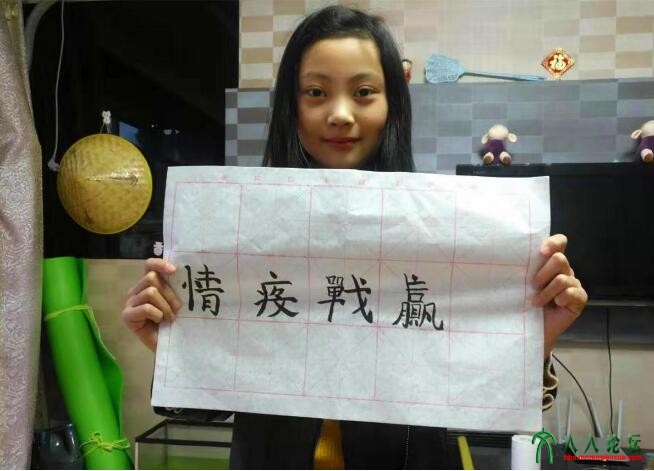 福
贏戰疫情
人人论坛